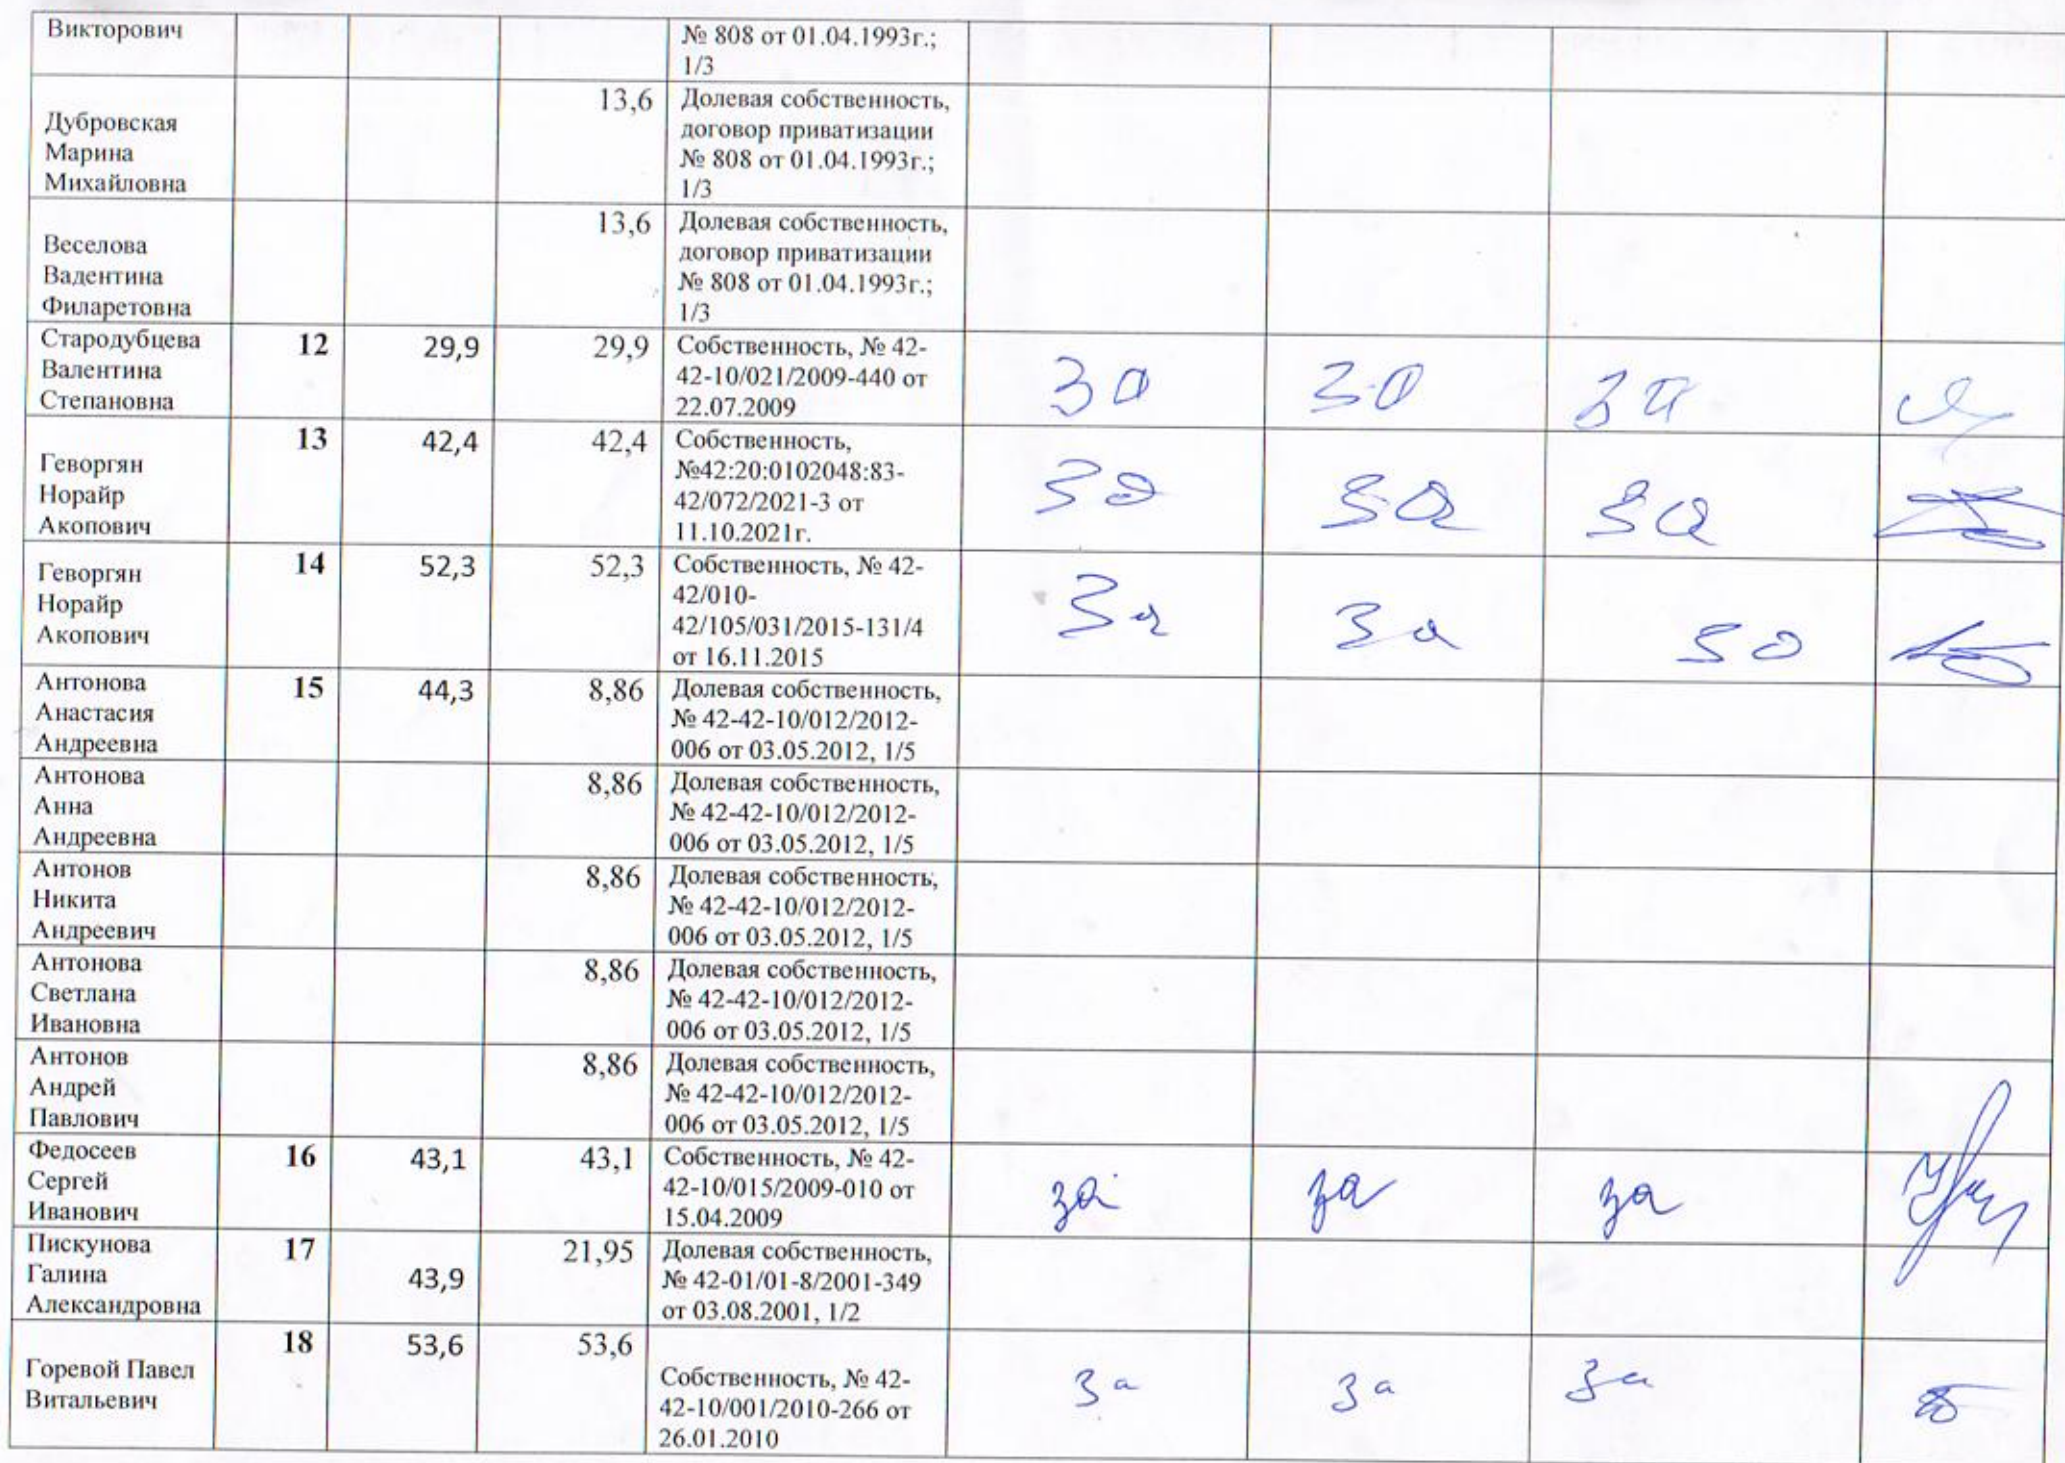 Викторович
№ 808 от 01.04.1993г.;
1/3
Дубровская
Марина
Михайловна
13,6
Долевая собственность,
договор приватизации
№ 808 от 01.04.1993г.;
1/3
Веселова
Вадентина
Филаретовна
13,6
Долевая собственность,
договор приватизации
№ 808 от 01.04.1993г.;
1/3
Стародубцева
Валентина
Степановна
12
29,9
29,9
Собственность, № 42-
42-10/021/2009-440 от
22.07.2009
за
за
за
Геворгян
Норайр
Акопович
13
42,4
42,4
Собственность,
№42:20:0102048:83-
42/072/2021-3 от
11.10.2021г.
за
за
за
Геворгян
Норайр
Акопович
14
52,3
52,3
Собственность, № 42-
42/010-
42/105/031/2015-131/4
от 16.11.2015
за
за
за
Антонова
Анастасия
Андреевна
15
44,3
8,86
Долевая собственность,
№ 42-42-10/012/2012-
006 от 03.05.2012, 1/5
Антонова
Анна
Андреевна
8,86
Долевая собственность,
№ 42-42-10/012/2012-
006 от 03.05.2012, 1/5
Антонов
Никита
Андреевич
8,86
Долевая собственность,
№ 42-42-10/012/2012-
006 от 03.05.2012, 1/5
Антонова
Светлана
Ивановна
8,86
Долевая собственность,
№ 42-42-10/012/2012-
006 от 03.05.2012, 1/5
Антонов
Андрей
Павлович
8,86
Долевая собственность,
№ 42-42-10/012/2012-
006 от 03.05.2012, 1/5
Федосеев
Сергей
Иванович
16
43,1
43,1
Собственность, № 42-
42-10/015/2009-010 от
15.04.2009
за
за
за
Пискунова
Галина
Александровна
17
43,9
21,95
Долевая собственность,
№ 42-01/01-8/2001-349
от 03.08.2001, 1/2
Горевой Павел
Витальевич
18
53,6
53,6
Собственность, № 42-
42-10/001/2010-266 от
26.01.2010
за
за
за